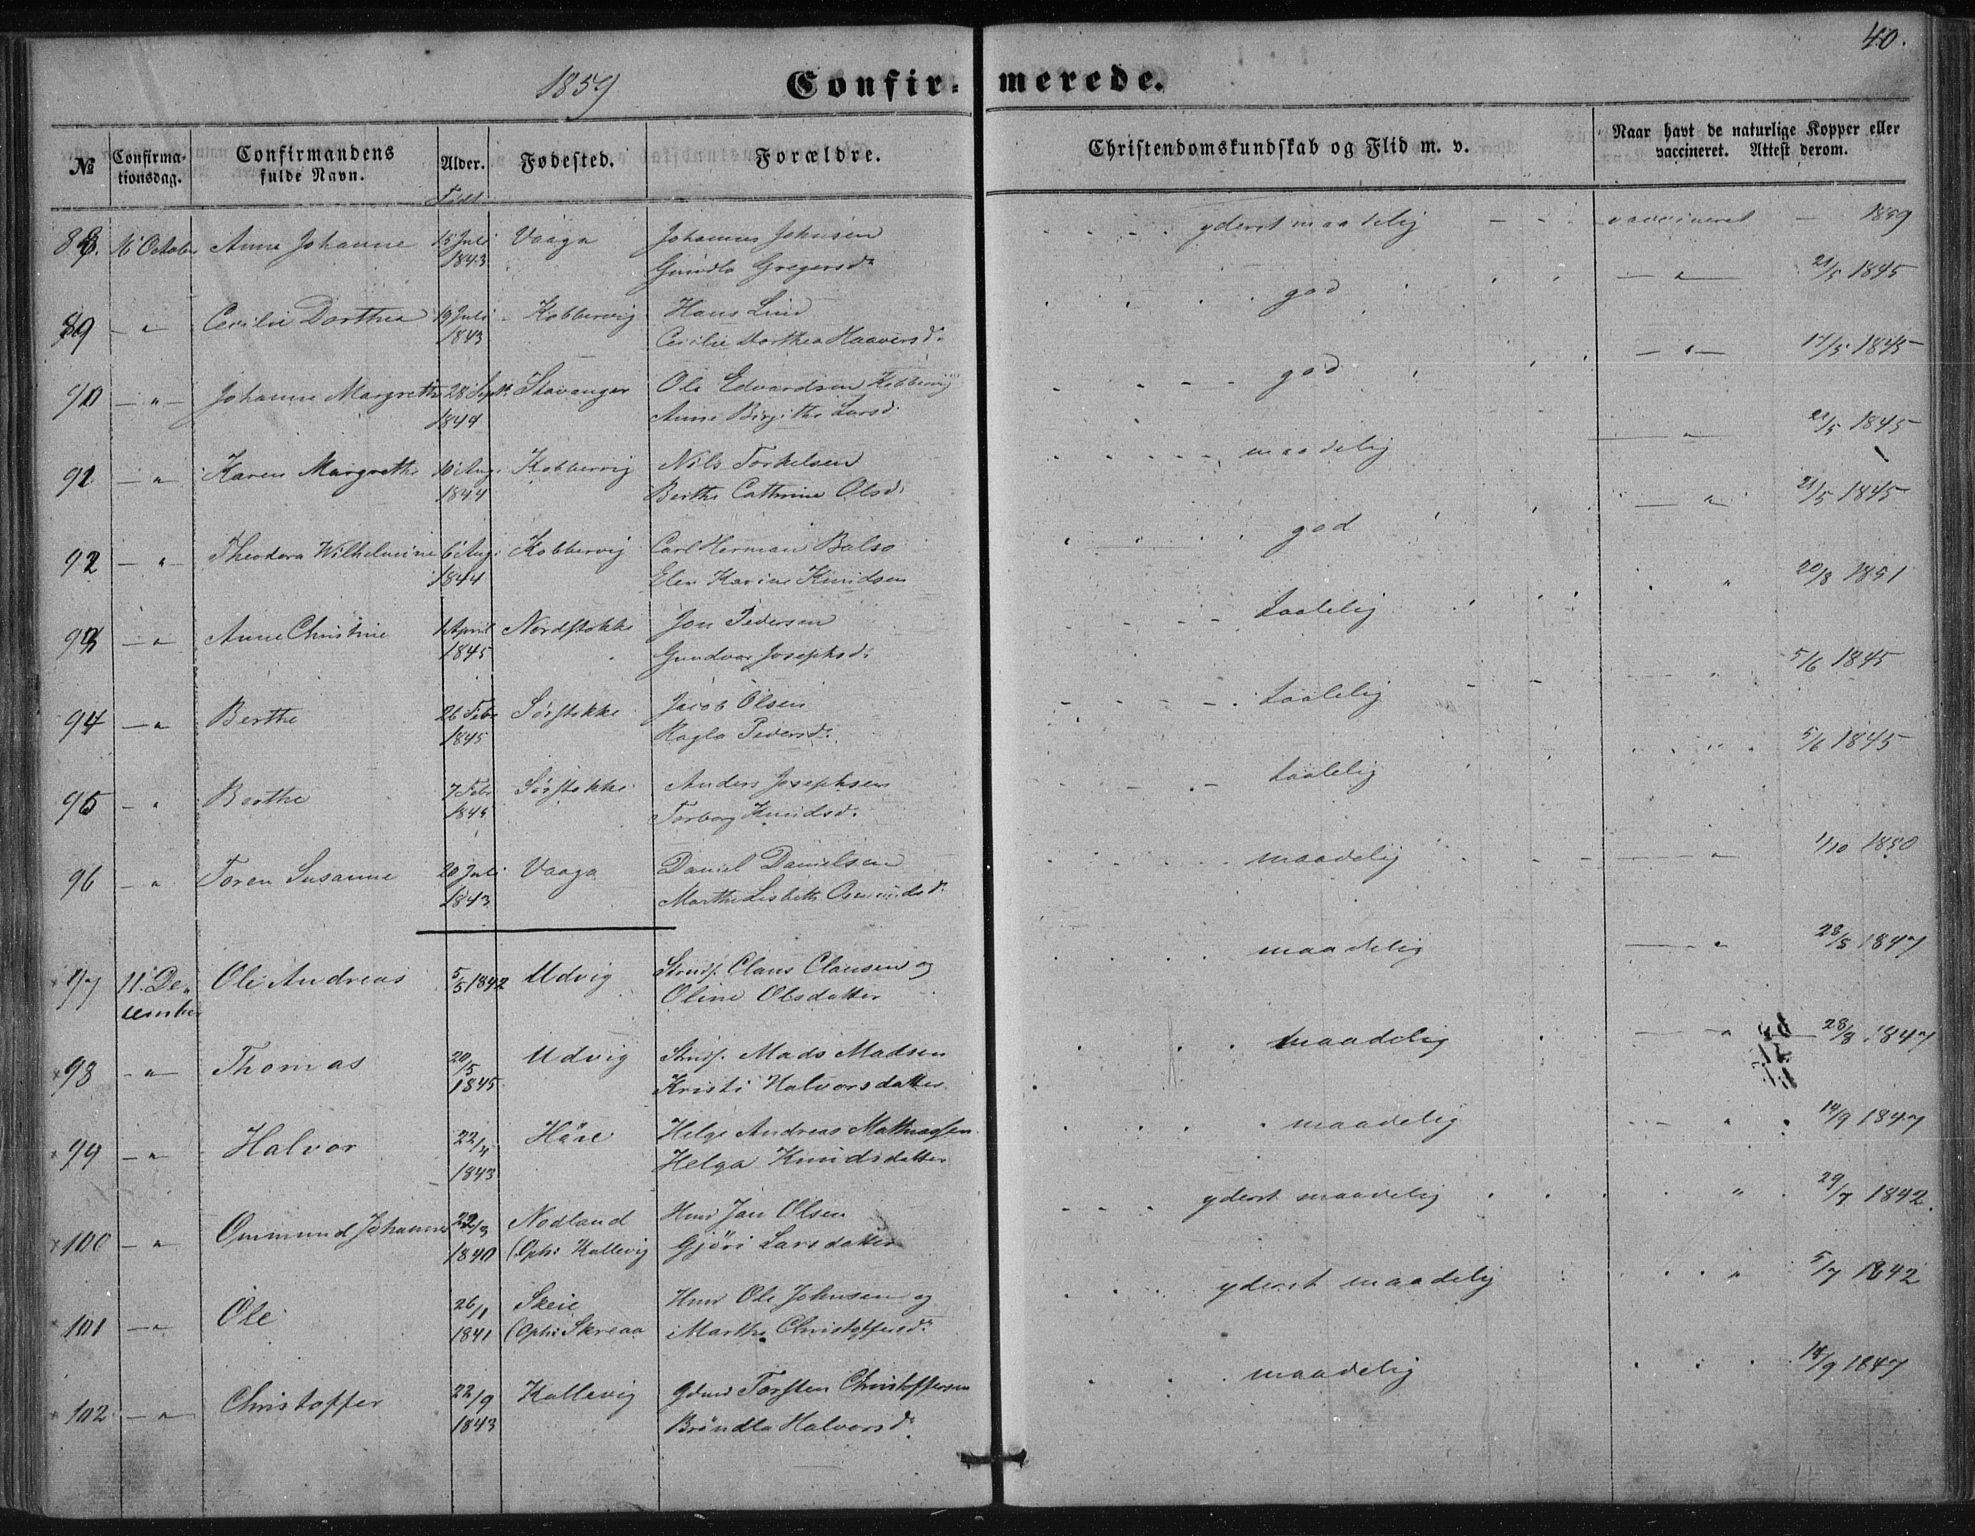 40.
1859 Confir- merede.
№ Confirma-tionsdag. Confirmandens fulde Navn. Alder. Fødested. Forældre. Christendomskundskab og Flid m. v. Naar havt de naturlige Kopper eller vaccineret. Attest derom.
Født
88. 16 October Anne Johanne 15 Juli Vaaga Johannes Johnsen yderst maadelig vaccineret 1859
1843 Gunilda Gregersd.
89 — " — Cecilie Dorthea 19 Juli Kobbervig Hans Lind god — " — 21/5 1845
1843 Cecilie Dorthea Haaversd.
90 — " — Johanne Margrethe 28 Sept. Stavanger Ole Edvardsen Kobbervig god — " — 17/5 1845
1844 Anne Birgithe Larsd.
91 — " — Karen Margrethe 10 Aug. Kobbervig Nils Torkelsen maadelig — " — 22/5 1845
1844 Berthe Cathrine Olsd.
92 — " — Theodora Wilhelmine 6 Aug. Kobbervig Carl Herman Balso god — " — 21/5 1845
1844 Elen Karine Knudsen
93 — " — Anne Christine 1 April Nordstokke Jon Pedersen taalelig " 20/8 1851
1845 Gundvor Josephsd.
94 — " — Berthe 26 Febr Sørstokke Jacob Olsen taalelig " 5/6 1845
1845 Ragla Pedersd.
95 — " Berthe 7 Febr Sørstokke Anders Josephsen taalelig " 5/6 1845
1845 Torborg Knudsd.
96 — " Toren Susanne 20 Juli Vaaga Daniel Danielsen maadelig — " — 1/10 1850
1843 Marthe Lisbeth Osmundsd.
97 11. De- Ole Andreas 5/5 1842 Udvig Strdsf. Claus Clausen og maadelig — " 28/8 1847
cember Oline Olsdatter
98 — " — Thomas 20/5 Udvig Strdsf. Mads Madsen maadelig — " 28/8 1847
1845 Kristi Halvorsdatter
99 — " — Halvor 22/4 Håre Helge Andreas Mathiassen maadelig " 14/9 1847
1843 Helga Knudsdatter
100 — " Ommund Johannes 22/3 Nodland Hmd Jan Olsen yderst maadelig " 29/7 1842
1840 (Oph: Kallevig Gjøri Larsdatter
101 — " — Ole 26/1 Skeie Hmd Ole Johnsen og yderst maadelig " 5/7 1842
1841 (Oph: Skreaa Marthe Christoffersd.
102 — " — Christoffer 22/9 Kallevig Gdmd Torsten Christoffersen maadelig 14/9 1847
1843 Brøndla Halvorsd.